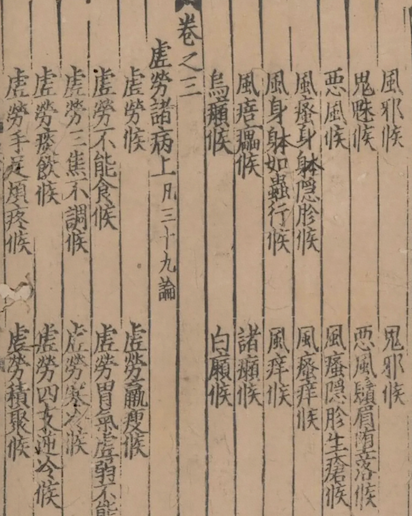 風邪候　鬼邪候
鬼魅候　惡風鬚眉墮落候
惡風候　風瘙隱胗生瘡候
風瘙身躰隱胗候　風瘙痒候
風身躰如蟲行候　風痒候
風痦㿔候　諸癩候
烏癩候　白癩候
卷之三
虗勞諸病上凡三十九論
虗勞候　虗勞羸瘦候
虗勞不能食候　虗勞胃氣虗弱不能
虗勞三焦不調候　虗勞寒冷候
虗勞痰飲候　虗勞四支逆冷候
虗勞手足煩疼候　虗勞積聚候